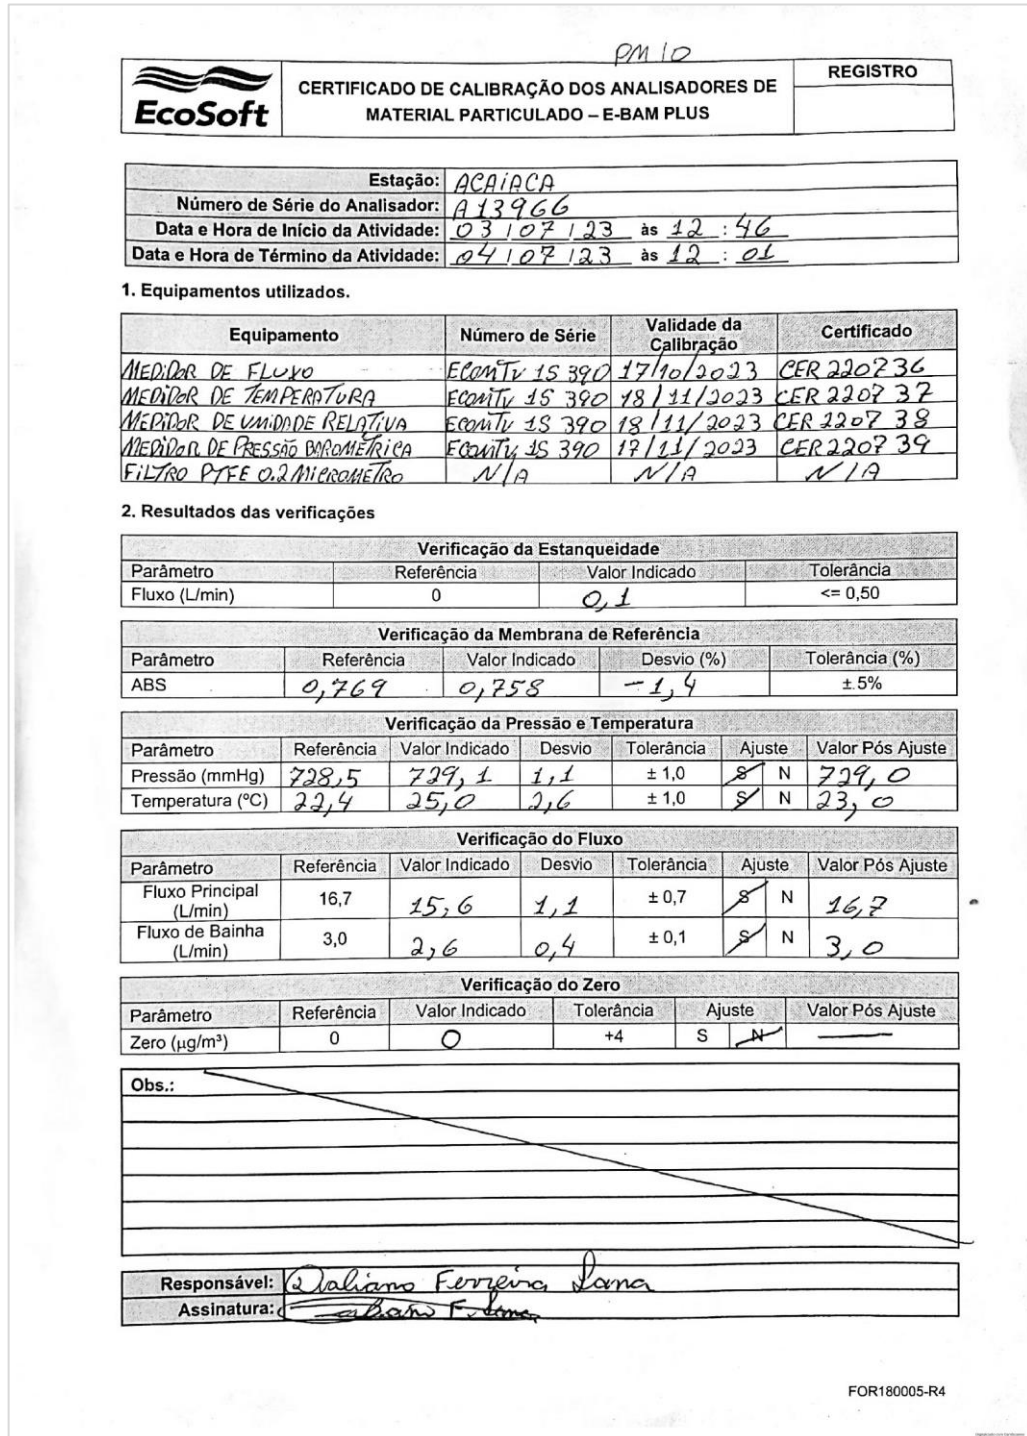 PM 10
EcoSoft
CERTIFICADO DE CALIBRAÇÃO DOS ANALISADORES DE
MATERIAL PARTICULADO – E-BAM PLUS
REGISTRO
Estação: ACAIACA
Número de Série do Analisador: A13966
Data e Hora de Início da Atividade: 03/07/23 às 12:46
Data e Hora de Término da Atividade: 04/07/23 às 12:01
1. Equipamentos utilizados.
Equipamento Número de Série Validade da Calibração Certificado
MEDIDOR DE FLUXO 15 390 17/10/2023 CER 220736
MEDIDOR DE TEMPERATURA 15 390 18/11/2023 CER 220737
MEDIDOR DE UMIDADE RELATIVA 15 390 18/11/2023 CER 220738
MEDIDOR DE PRESSÃO BAROMÉTRICA 15 390 17/11/2023 CER 220739
FILTRO PTFE 0.2 MICROMETRO N/A N/A N/A
2. Resultados das verificações
Verificação da Estanqueidade
Parâmetro Referência Valor Indicado Tolerância
Fluxo (L/min) 0 0,1 <= 0,50
Verificação da Membrana de Referência
Parâmetro Referência Valor Indicado Desvio (%) Tolerância (%)
ABS 0,769 0,758 -1,4 ± 5%
Verificação da Pressão e Temperatura
Parâmetro Referência Valor Indicado Desvio Tolerância Ajuste Valor Pós Ajuste
Pressão (mmHg) 728,5 729,1 1,1 ± 1,0 S N 729,0
Temperatura (ºC) 22,4 25,0 2,6 ± 1,0 S N 23,0
Verificação do Fluxo
Parâmetro Referência Valor Indicado Desvio Tolerância Ajuste Valor Pós Ajuste
Fluxo Principal (L/min) 16,7 15,6 1,1 ± 0,7 S N 16,7
Fluxo de Bainha (L/min) 3,0 2,6 0,4 ± 0,1 S N 3,0
Verificação do Zero
Parâmetro Referência Valor Indicado Tolerância Ajuste Valor Pós Ajuste
Zero (µg/m³) 0 0 +4 S N —
Obs.:
Responsável: Ferreira Lana
Assinatura:
FOR180005-R4